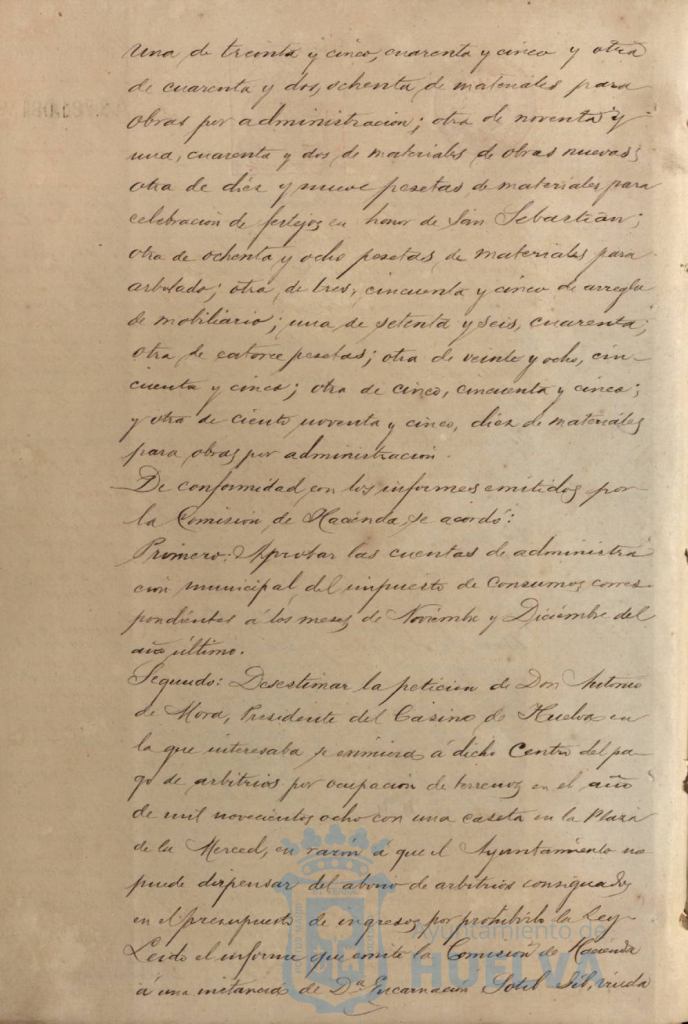 una de treinta y cinco, cuarenta y cinco y otra
de cuarenta y dos, ochenta, de materiales para
obras por administración; otra de noventa y
una, cuarenta y dos, de materiales de obras nuevas;
otra de diez y nueve pesetas de materiales para
celebración de festejos en honor de San Sebastian;
otra de ochenta y ocho pesetas de materiales para
arbolado; otra, de tres, cincuenta y cinco de arreglo
de mobiliario; una de setenta y seis, cuarenta;
otra de catorce pesetas; otra de veinte y ocho, cin-
cuenta y cinco; otra de cinco, cincuenta y cinco;
y otra de ciento noventa y cinco, diez de materiales
para obras por administración.
De conformidad con los informes emitidos por
la Comisión de Hacienda, se acordó:
Primero: Aprobar las cuentas de administra
ción municipal del impuesto de Consumos corres-
pondientes á los meses de Noviembre y Diciembre del
año último.
Segundo: Desestimar la petición de Don Antonio
de Mora, Presidente del Casino de Huelva en
la que interesaba se eximiera á dicho Centro del pa-
go de arbitrios por ocupación de terrenos en el año
de mil novecientos ocho con una caseta en la Plaza
de la Merced, en razón á que el Ayuntamiento no
puede dispensar del abono de arbitrios consignados
en el presupuesto de ingresos por prohibirlo la Ley.
Leido el informe que emite la Comisión de Hacienda
á una instancia de Dª Encarnación Sotel Sil, viuda
Ayuntamiento de
HUELVA